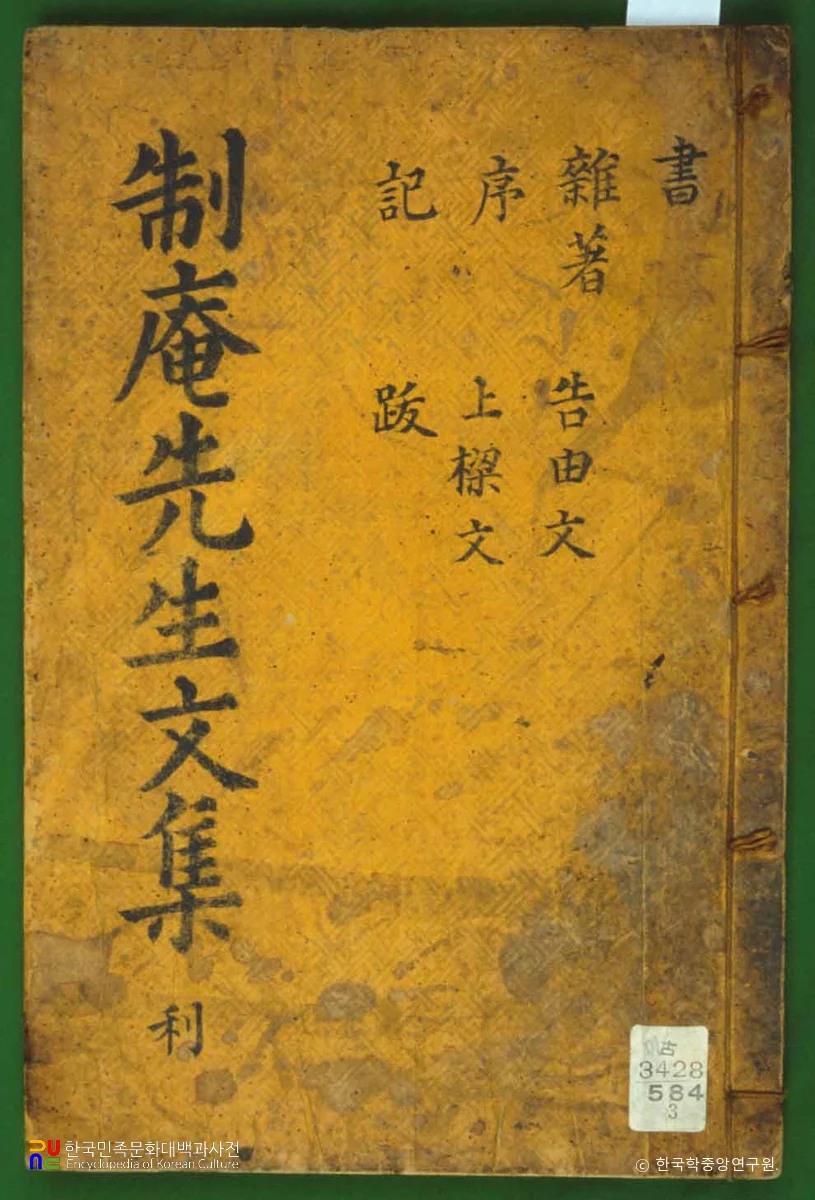 書
雜著 告由文
序 上樑文
記 跋
制庵先生文集 利
古
3428
584
3
한국민족문화대백과사전
Encyclopedia of Korean Culture
© 한국학중앙연구원.